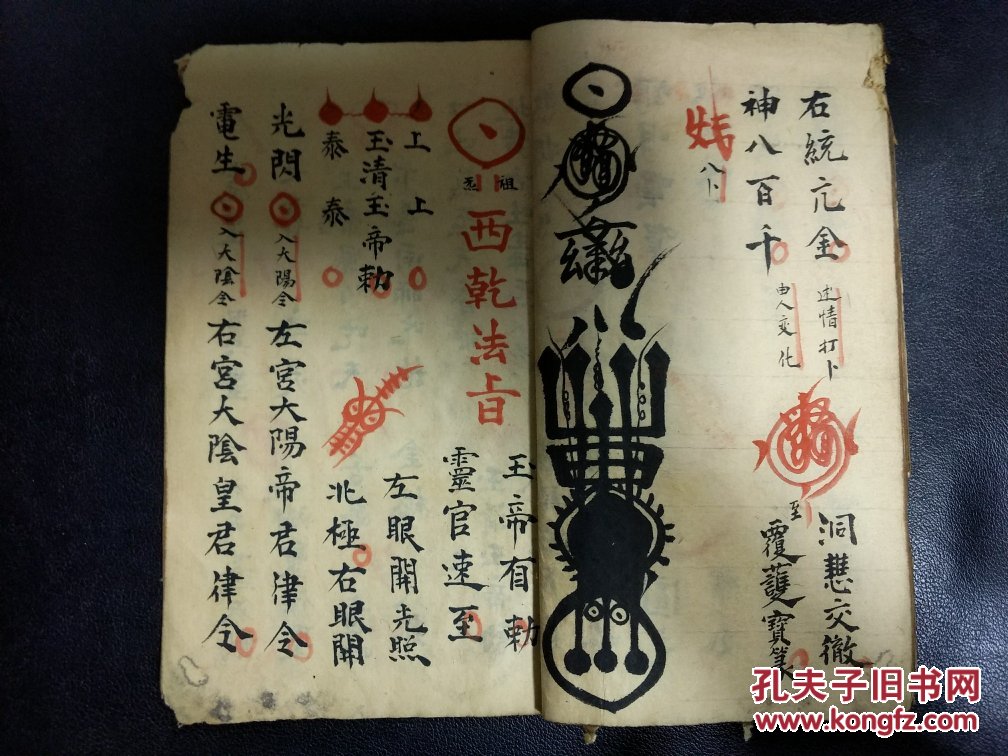 右統亢金
打卜
洞慧交徹
至
覆護寶籙
神八百千
由人變化
八卜
玉帝有勅
靈官速至
祖
西乾法旨
上 上
左眼開光照
玉清玉帝勅
北極右眼開
泰 泰
光閃
入太陽令
左宮太陽帝君律令
電生
入大陰令
右宮大陰皇君律令
孔夫子旧书网
www.kongfz.com